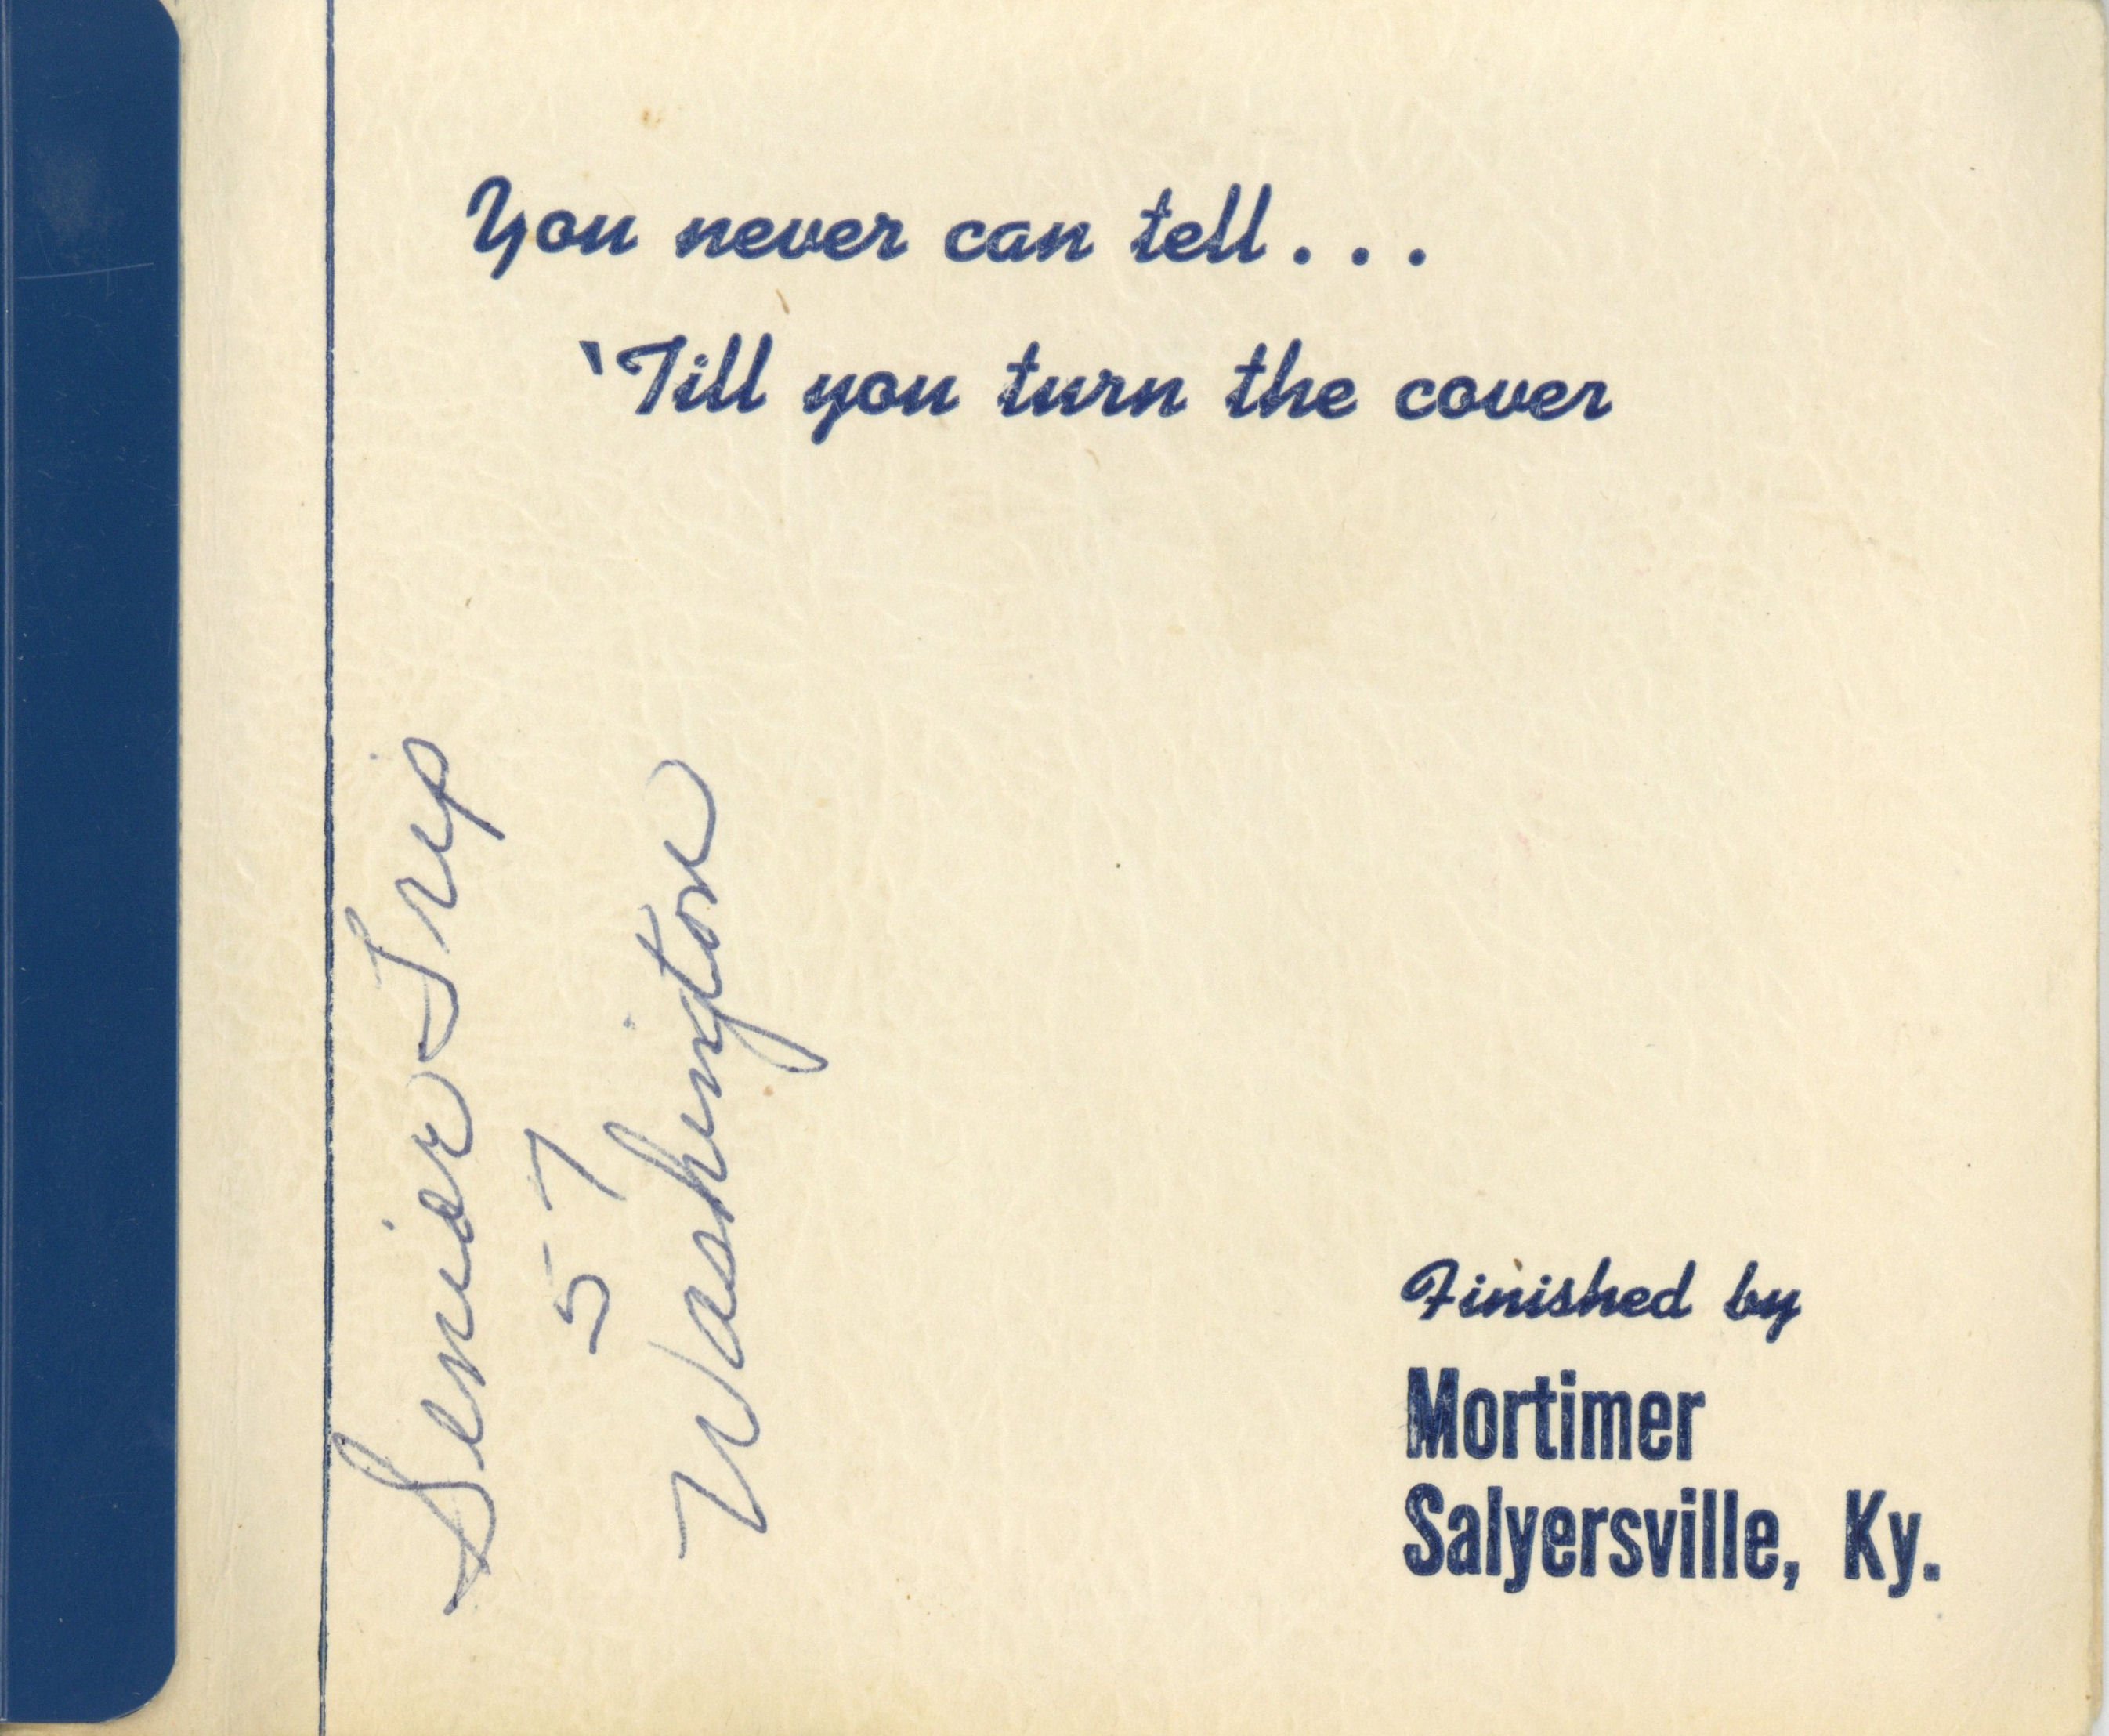 You never can tell...
'Till you turn the cover
Senior Trip
57
Washington
Finished by
Mortimer
Salyersville, Ky.